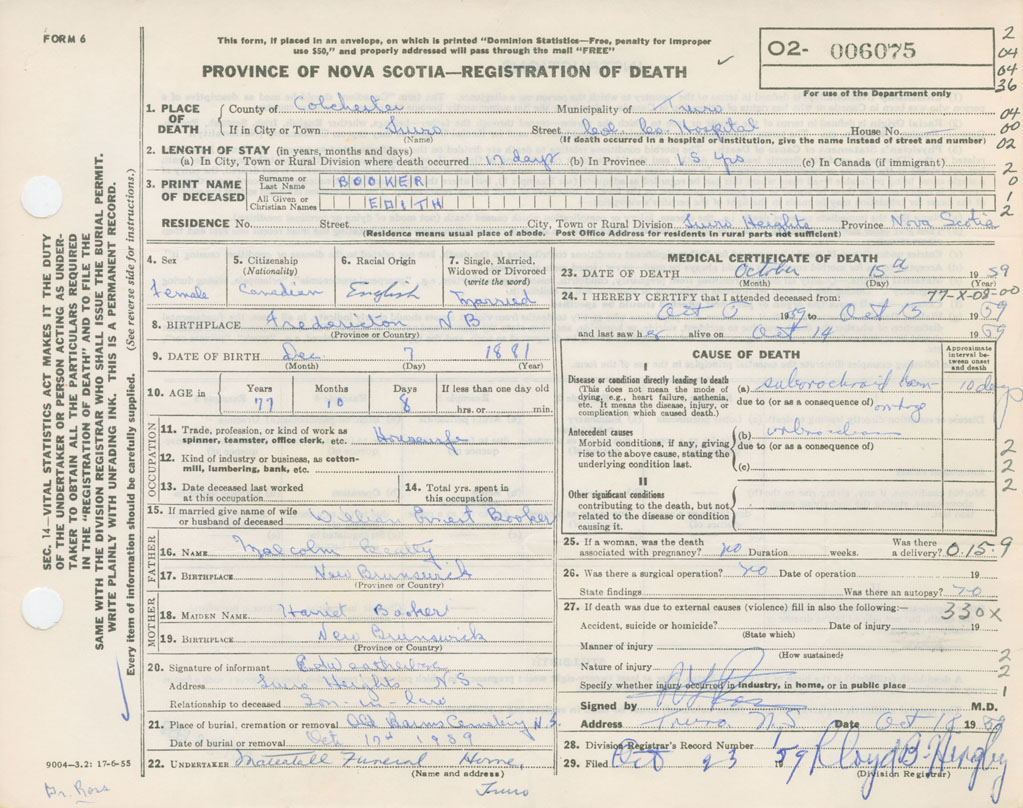 FORM 6
This form, if placed in an envelope, on which is printed "Dominion Statistics—Free, penalty for improper
use $50," and properly addressed will pass through the mail "FREE"
PROVINCE OF NOVA SCOTIA—REGISTRATION OF DEATH
O2- 006075
For use of the Department only
2
04
04
36
04
00
02
2
0
1
2
1. PLACE OF DEATH County of Colchester Municipality of Truro
If in City or Town Truro Street Col. Co. Hospital House No. —
(Name) (If death occurred in a hospital or institution, give the name instead of street and number)
2. LENGTH OF STAY (in years, months and days)
(a) In City, Town or Rural Division where death occurred 17 days (b) In Province 15 yrs (c) In Canada (if immigrant)
3. PRINT NAME OF DECEASED Surname or Last Name BOOKER
All Given or Christian Names EDITH
RESIDENCE No. Street City, Town or Rural Division Truro Heights Province Nova Scotia
(Residence means usual place of abode. Post Office Address for residents in rural parts not sufficient)
4. Sex
Female
5. Citizenship
(Nationality)
Canadian
6. Racial Origin
English
7. Single, Married,
Widowed or Divorced
(write the word)
Married
8. BIRTHPLACE Fredericton NB
(Province or Country)
9. DATE OF BIRTH Dec 7 1881
(Month) (Day) (Year)
10. AGE in Years Months Days If less than one day old
77 10 8 hrs. or min.
OCCUPATION
11. Trade, profession, or kind of work as
spinner, teamster, office clerk, etc. Housewife
12. Kind of industry or business, as cotton-
mill, lumbering, bank, etc.
13. Date deceased last worked
at this occupation
14. Total yrs. spent in
this occupation
15. If married give name of wife
or husband of deceased William Ernest Booker
FATHER
16. NAME Malcolm Beatty
17. BIRTHPLACE New Brunswick
(Province or Country)
MOTHER
18. MAIDEN NAME Harriet Booker
19. BIRTHPLACE New Brunswick
(Province or Country)
20. Signature of informant
Address Truro Heights N.S.
Relationship to deceased Son-in-law
21. Place of burial, cremation or removal Old Barns Cemetery N.S.
Date of burial or removal Oct 17th 1959
22. UNDERTAKER Mattatall Funeral Home,
(Name and address)
Truro
MEDICAL CERTIFICATE OF DEATH
23. DATE OF DEATH October 15th 1959
(Month) (Day) (Year)
77-X-08-00
24. I HEREBY CERTIFY that I attended deceased from:
Oct 5 1959 to Oct 15 1959
and last saw her alive on Oct 14 1959
CAUSE OF DEATH
Approximate
interval be-
tween onset
and death
I
Disease or condition directly leading to death
(This does not mean the mode of
dying, e.g., heart failure, asthenia,
etc. It means the disease, injury, or
complication which caused death.)
(a) subarachnoid hem-
orrhage
10 days
due to (or as a consequence of)
Antecedent causes
Morbid conditions, if any, giving
rise to the above cause, stating the
underlying condition last.
(b)
due to (or as a consequence of)
(c)
2
2
2
II
Other significant conditions
contributing to the death, but not
related to the disease or condition
causing it.
25. If a woman, was the death
associated with pregnancy? no Duration weeks. Was there
a delivery? 0.15.9
26. Was there a surgical operation? no Date of operation 19
State findings Was there an autopsy? no
27. If death was due to external causes (violence) fill in also the following:—
330X
Accident, suicide or homicide? Date of injury 19
(State which)
Manner of injury
(How sustained)
Nature of injury
2
2
1
Specify whether injury occurred in industry, in home, or in public place
Signed by M.D.
Address Truro N.S Date Oct 18 1959
28. Division Registrar's Record Number
29. Filed Oct 23 1959
(Division Registrar)
SEC. 14—VITAL STATISTICS ACT MAKES IT THE DUTY
OF THE UNDERTAKER OR PERSON ACTING AS UNDER-
TAKER TO OBTAIN ALL THE PARTICULARS REQUIRED
IN THE "REGISTRATION OF DEATH" AND TO FILE THE
SAME WITH THE DIVISION REGISTRAR WHO SHALL ISSUE THE BURIAL PERMIT.
WRITE PLAINLY WITH UNFADING INK. THIS IS A PERMANENT RECORD.
Every item of information should be carefully supplied. (See reverse side for instructions.)
9004—3.2: 17-6-55
Dr. Ross